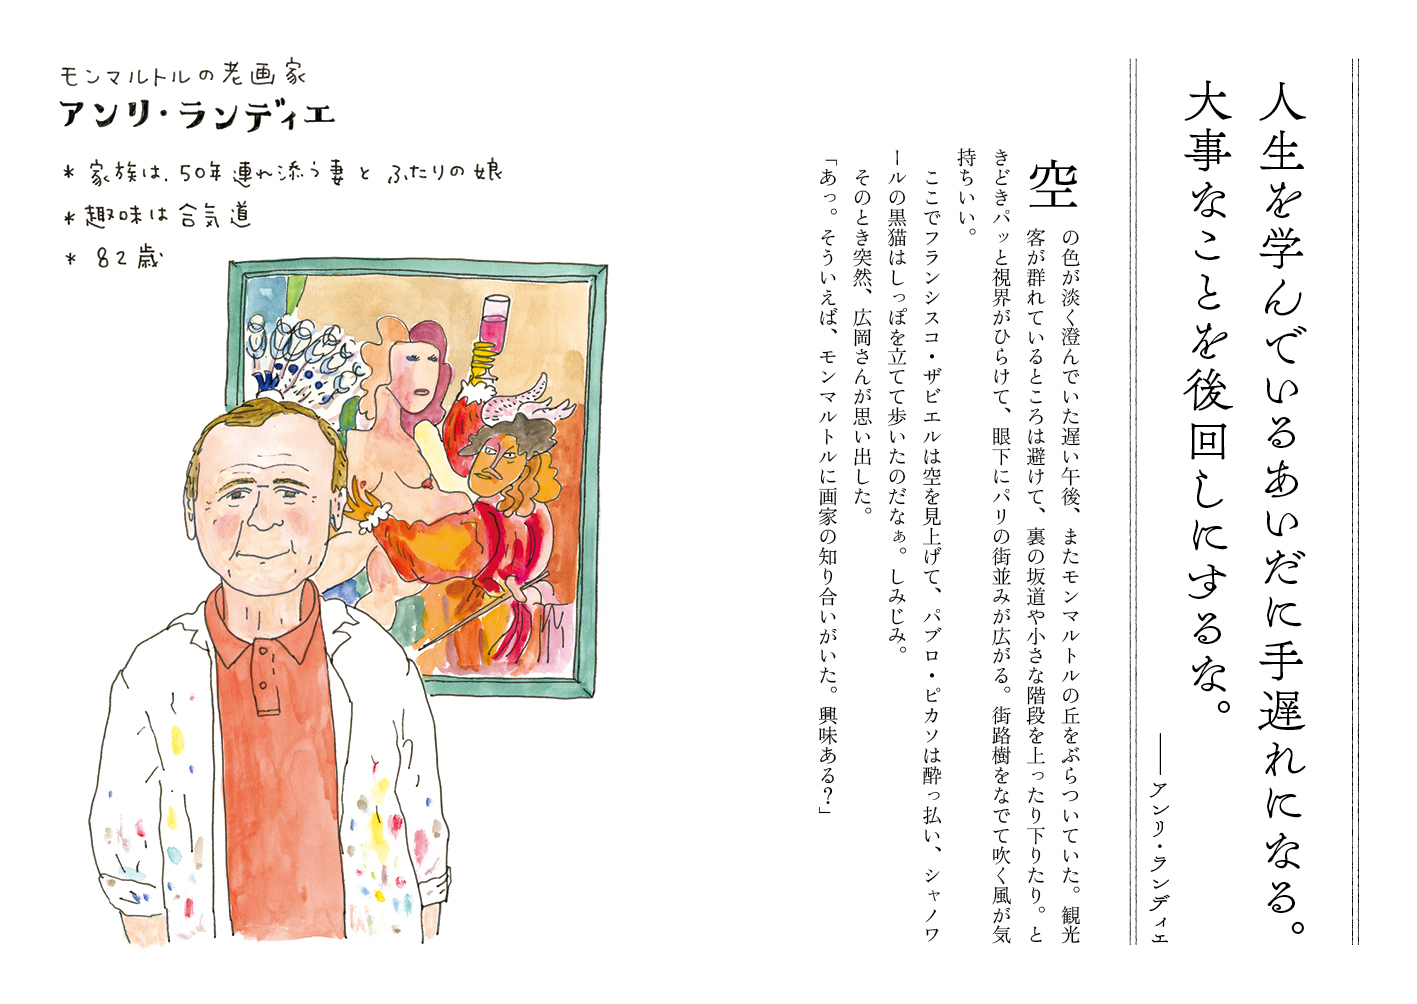 人生を学んでいるあいだに手遅れになる。
大事なことを後回しにするな。
――アンリ・ランディエ
空の色が淡く澄んでいた遅い午後、またモンマルトルの丘をぶらついていた。観光
客が群れているところは避けて、裏の坂道や小さな階段を上ったり下りたり。と
きどきパッと視界がひらけて、眼下にパリの街並みが広がる。街路樹をなでて吹く風が気
持ちいい。
ここでフランシスコ・ザビエルは空を見上げて、パブロ・ピカソは酔っ払い、シャノワ
ールの黒猫はしっぽを立てて歩いたのだなぁ。しみじみ。
そのとき突然、広岡さんが思い出した。
「あっ。そういえば、モンマルトルに画家の知り合いがいた。興味ある？」
モンマルトルの老画家
アンリ・ランディエ
* 家族は、50年連れ添う妻とふたりの娘
* 趣味は合気道
* 82歳